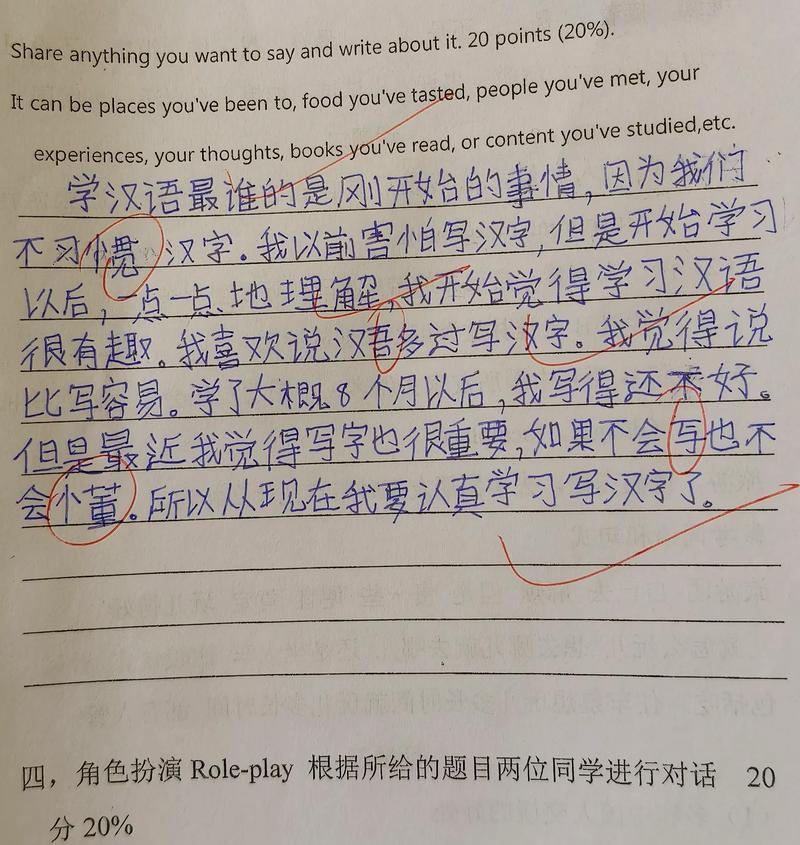 Share anything you want to say and write about it. 20 points (20%).
It can be places you've been to, food you've tasted, people you've met, your
experiences, your thoughts, books you've read, or content you've studied,etc.
学汉语最谁的是刚开始的事情，因为我们
不习惯汉字。我以前害怕写汉字，但是开始学习
以后，一点一点地理解，我开始觉得学习汉语
很有趣。我喜欢说汉吾多过写汉字。我觉得说
比写容易。学了大概8个月以后，我写得还不好。
但是最近我觉得写字也很重要，如果不会写也不
会懂。所以从现在我要认真学习写汉字了。
四，角色扮演 Role-play 根据所给的题目两位同学进行对话 20
分 20%